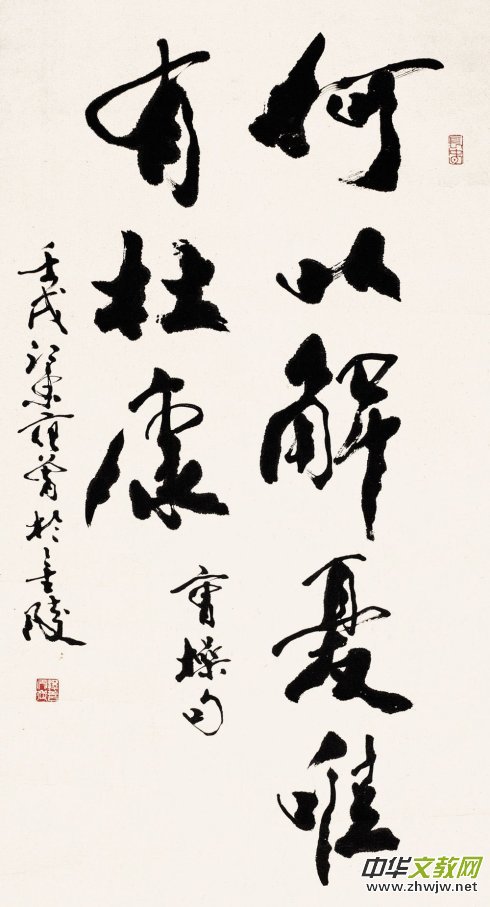 何以解憂唯
有杜康
曹操句
壬戌江東范曾於金陵
中华文教网
www.zhwjw.net